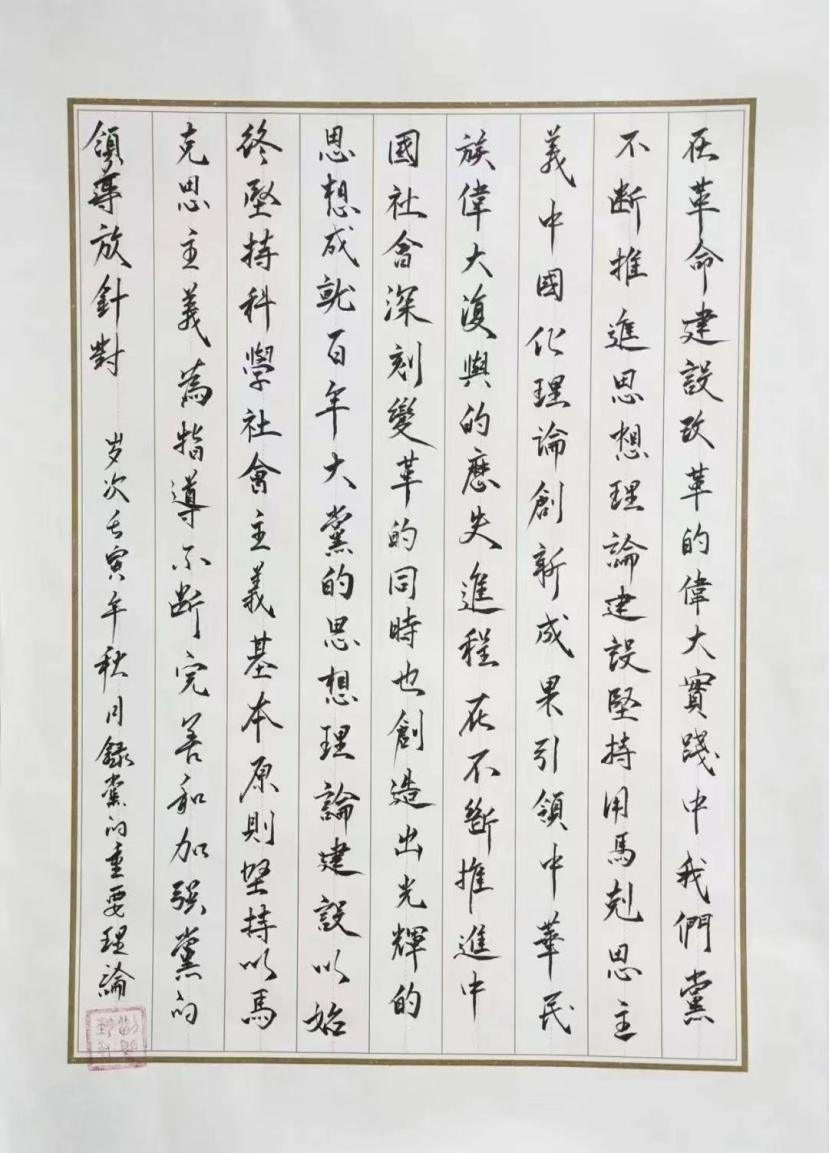 在革命建設改革的偉大實踐中我們黨
不断推進思想理論建設堅持用馬剋思主
義中國化理論創新成果引領中華民
族偉大復興的歷史進程在不斷推進中
國社會深刻變革的同時也創造出光輝的
思想成就百年大黨的思想理論建設以始
終堅持科學社會主義基本原則堅持以馬
克思主義為指導不断完善和加强黨的
領導放針對
岁次壬寅年秋月錄黨的重要理論